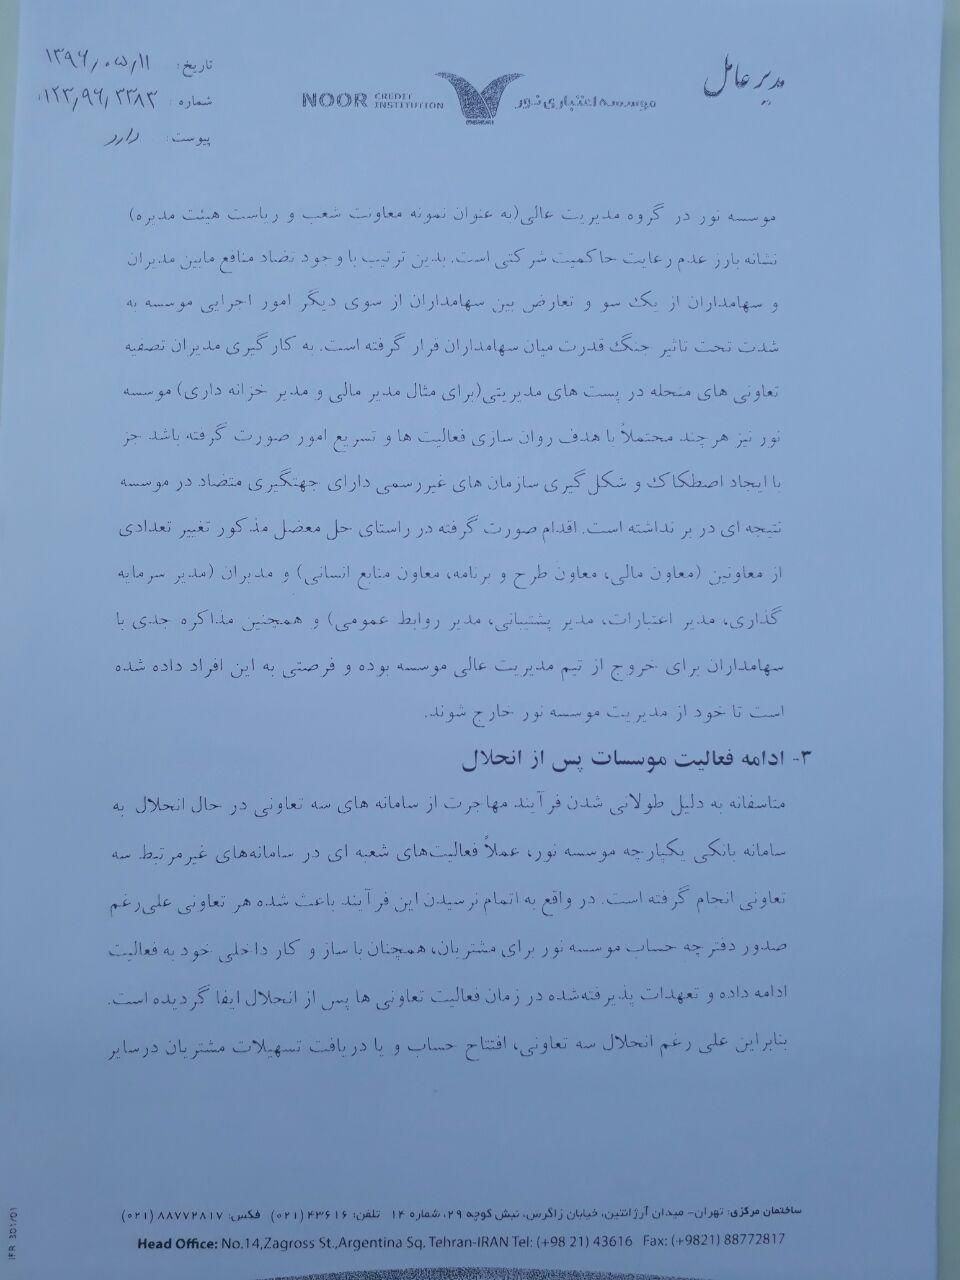 مدیر عامل
موسسه اعتباری نور
NOOR CREDIT INSTITUTION
تاریخ: ۱۳۹۶/۰۵/۱۱
شماره: ۱۲۳/۹۶/۳۳۸۳
پیوست: دارد
موسسه نور در گروه مدیریت عالی(به عنوان نمونه معاونت شعب و ریاست هیئت مدیره)
نشانه بارز عدم رعایت حاکمیت شرکتی است. بدین ترتیب با وجود تضاد منافع مابین مدیران
و سهامداران از یک سو و تعارض بین سهامداران از سوی دیگر امور اجرایی موسسه به
شدت تحت تاثیر جنگ قدرت میان سهامداران قرار گرفته است. به کارگیری مدیران تصفیه
تعاونی های منحله در پست های مدیریتی(برای مثال مدیر مالی و مدیر خزانه داری) موسسه
نور نیز هر چند محتملاً با هدف روان سازی فعالیت ها و تسریع امور صورت گرفته باشد جز
با ایجاد اصطکاک و شکل گیری سازمان های غیررسمی دارای جهتگیری متضاد در موسسه
نتیجه ای در بر نداشته است. اقدام صورت گرفته در راستای حل معضل مذکور تغییر تعدادی
از معاونین (معاون مالی، معاون طرح و برنامه، معاون منابع انسانی) و مدیران (مدیر سرمایه
گذاری، مدیر اعتبارات، مدیر پشتیبانی، مدیر روابط عمومی) و همچنین مذاکره جدی با
سهامداران برای خروج از تیم مدیریت عالی موسسه بوده و فرصتی به این افراد داده شده
است تا خود از مدیریت موسسه نور خارج شوند.
۳- ادامه فعالیت موسسات پس از انحلال
متاسفانه به دلیل طولانی شدن فرآیند مهاجرت از سامانه های سه تعاونی در حال انحلال به
سامانه بانکی یکپارچه موسسه نور، عملاً فعالیت‌های شعبه ای در سامانه‌های غیرمرتبط سه
تعاونی انجام گرفته است. در واقع به اتمام نرسیدن این فرآیند باعث شده هر تعاونی علی‌رغم
صدور دفترچه حساب موسسه نور برای مشتریان، همچنان با ساز و کار داخلی خود به فعالیت
ادامه داده و تعهدات پذیرفته‌شده در زمان فعالیت تعاونی ها پس از انحلال ایفا گردیده است.
بنابراین علی رغم انحلال سه تعاونی، افتتاح حساب و یا دریافت تسهیلات مشتریان درسایر
ساختمان مرکزی: تهران- میدان آرژانتین، خیابان زاگرس، نبش کوچه ۲۹، شماره ۱۴ تلفن: ۴۳۶۱۶ (۰۲۱) فکس: ۸۸۷۷۲۸۱۷ (۰۲۱)
Head Office: No.14,Zagross St.,Argentina Sq. Tehran-IRAN Tel: (+98 21) 43616 Fax: (+9821) 88772817
IFR 301/01